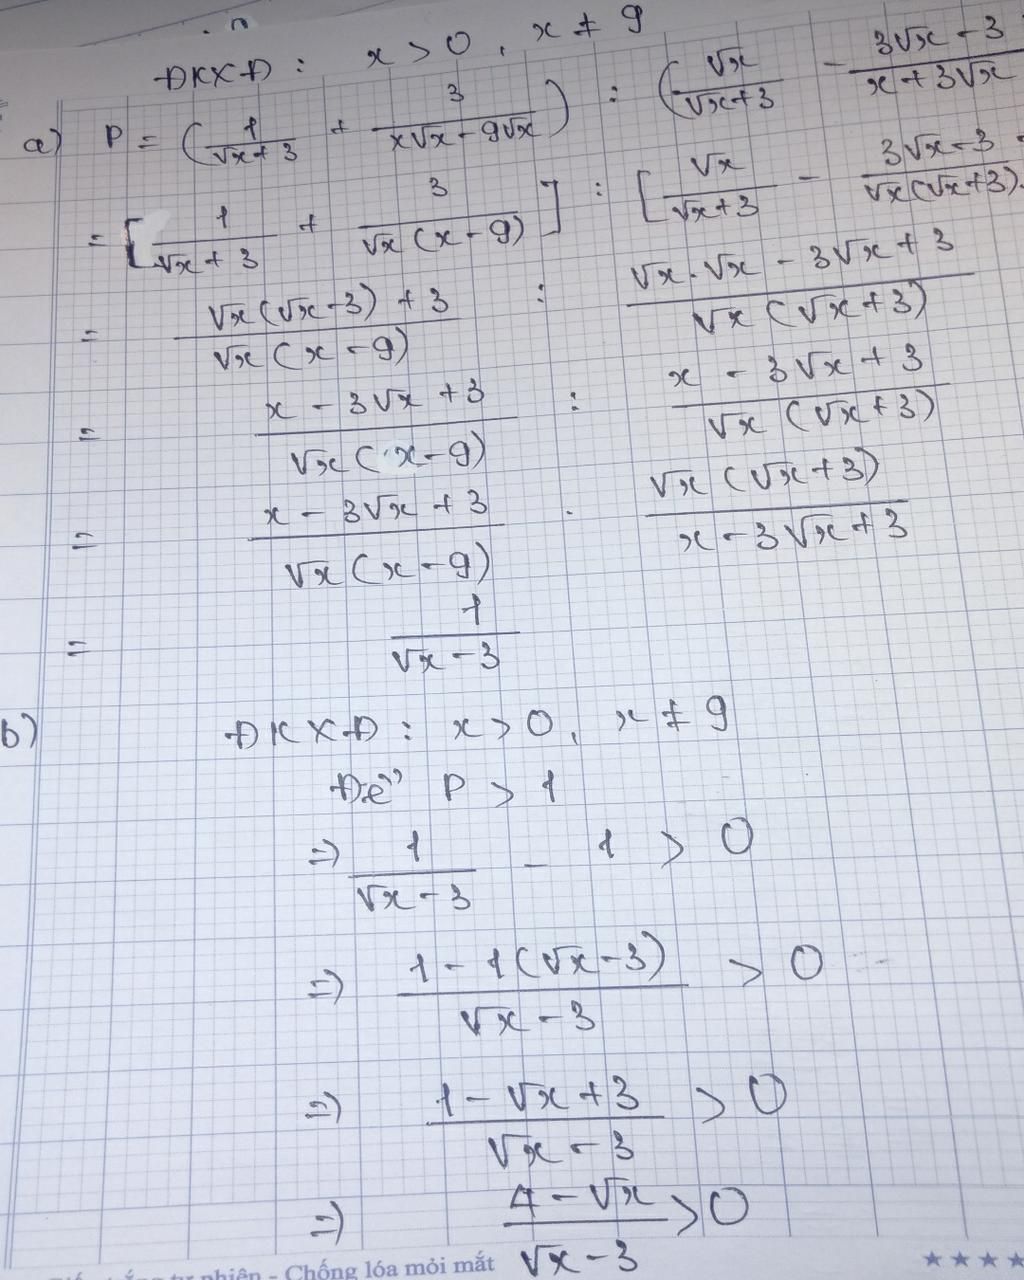 ĐKXĐ : x > 0 , x ≠ 9
a) P = ( 1/(√x+3) + 3/(x√x - 9√x) ) : ( √x/(√x+3) - (3√x - 3)/(x + 3√x)
= [ 1/(√x+3) + 3/(√x(x-9)) ] : [ √x/(√x+3) - (3√x-3)/(√x(√x+3))
= (√x(√x-3) + 3)/(√x(x-9)) : (√x.√x - 3√x + 3)/(√x(√x+3))
= (x - 3√x + 3)/(√x(x-9)) : (x - 3√x + 3)/(√x(√x+3))
= (x - 3√x + 3)/(√x(x-9)) . (√x(√x+3))/(x - 3√x + 3)
= 1/(√x-3)
b) ĐKXĐ : x > 0, x ≠ 9
Để P > 1
=> 1/(√x-3) - 1 > 0
=> (1 - 1(√x-3))/(√x-3) > 0
=> (1 - √x + 3)/(√x-3) > 0
=> (4 - √x)/(√x-3) > 0
tự nhiên - Chống lóa mỏi mắt